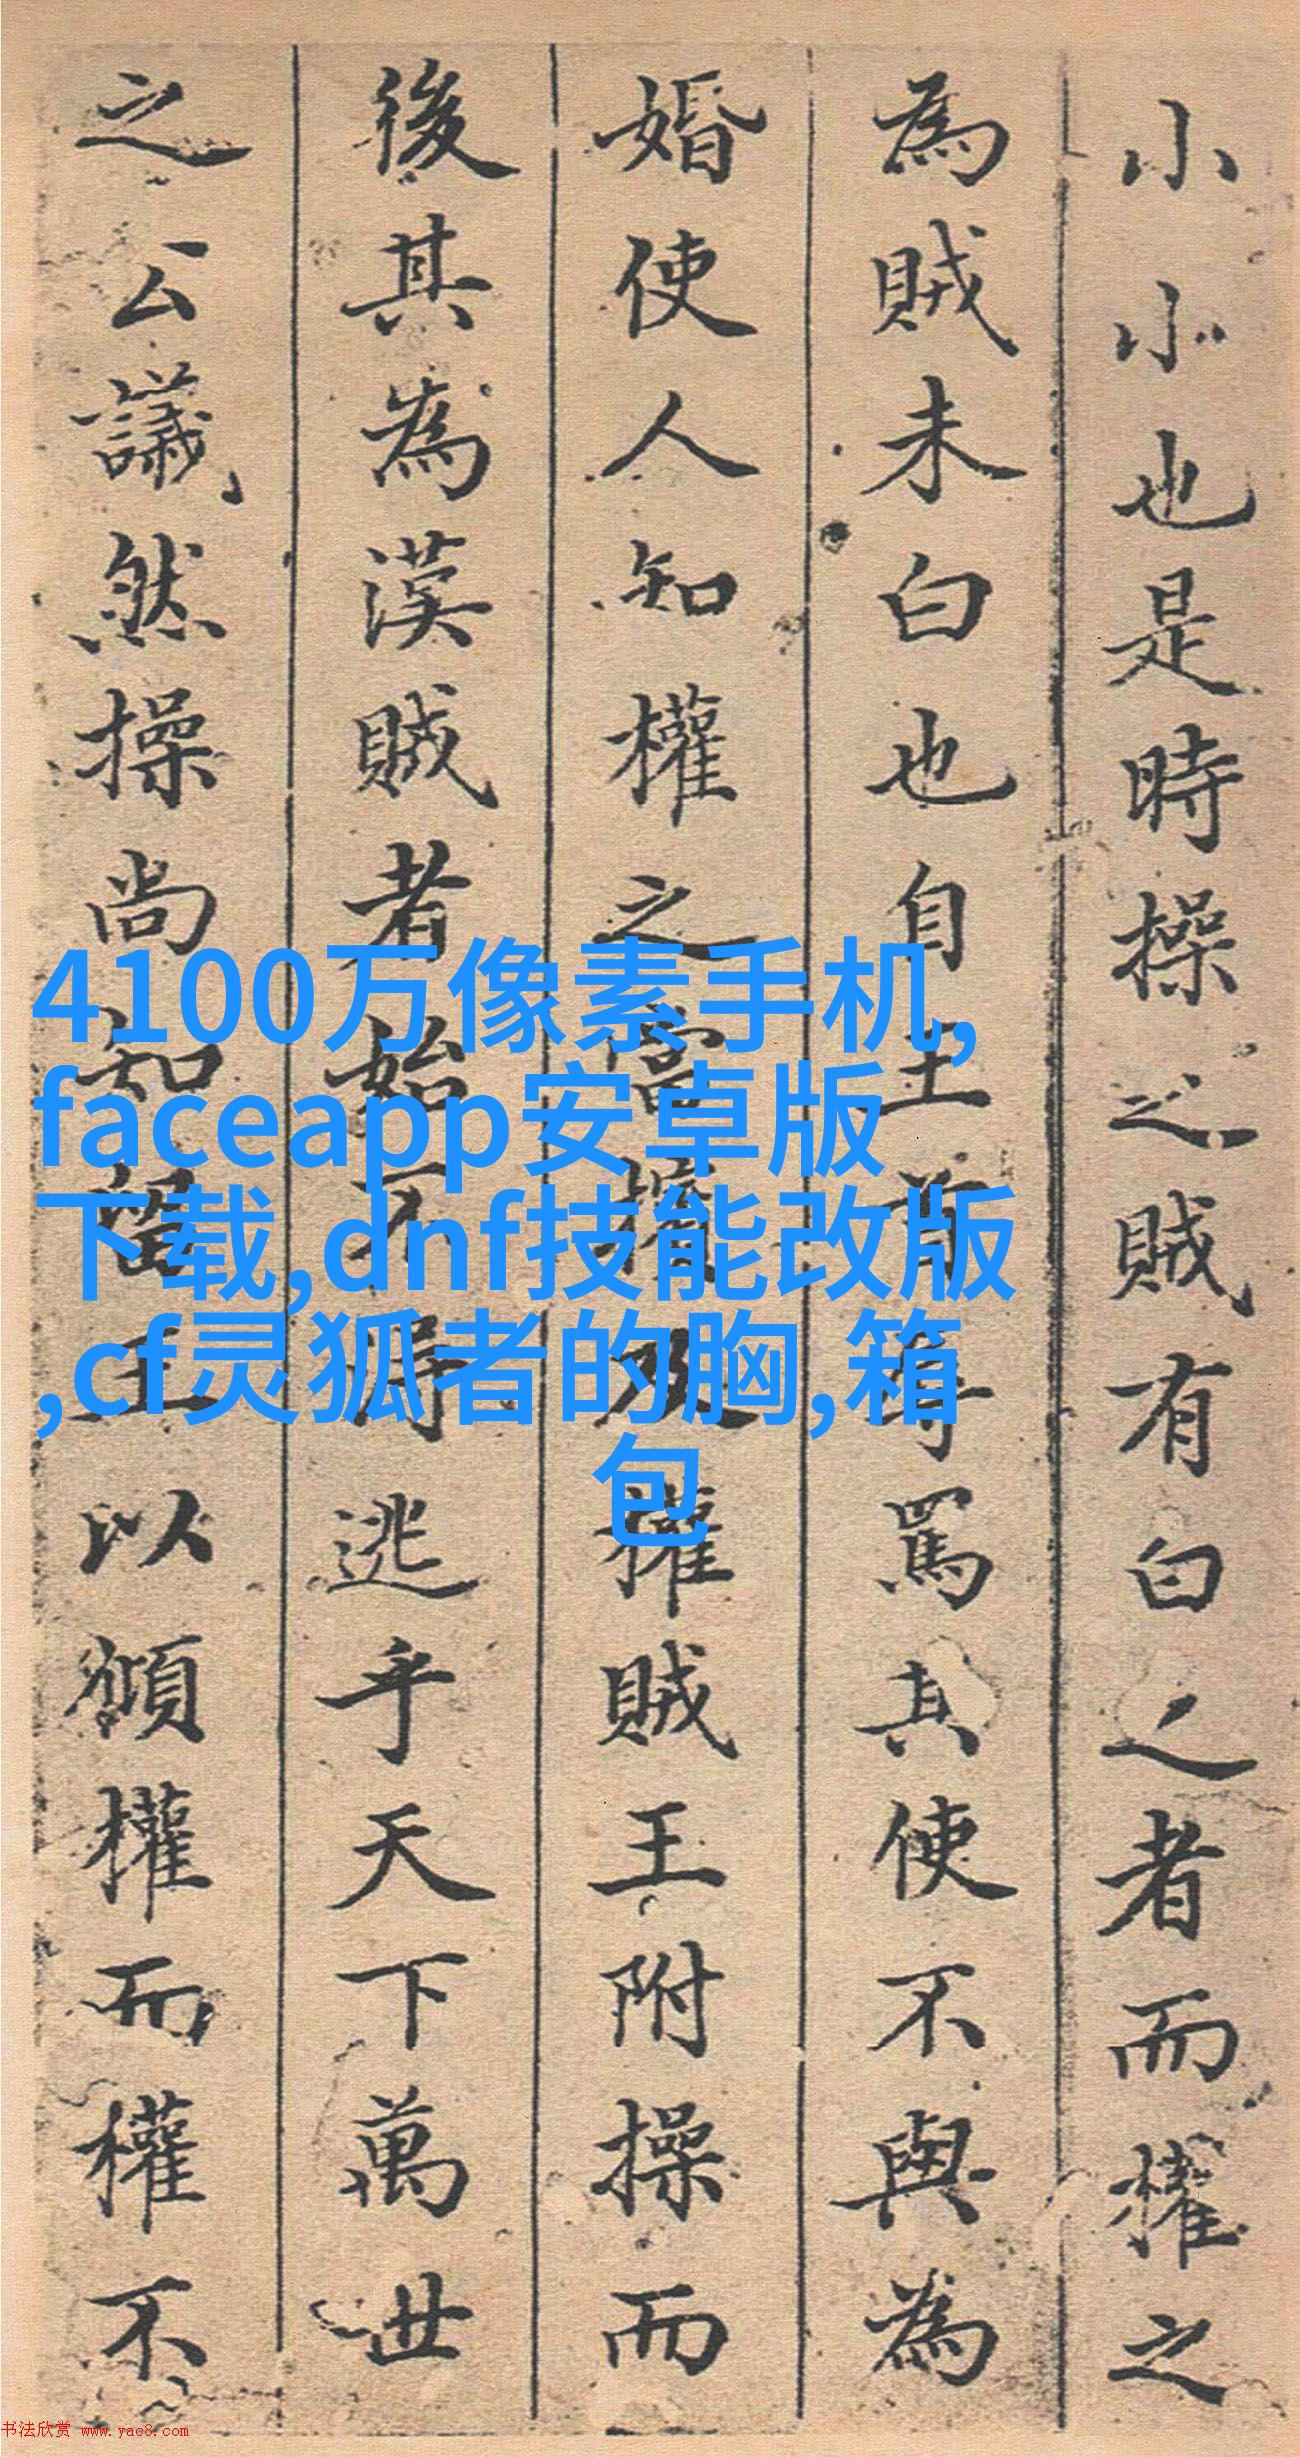 小小也是時操之賊有白之者而權之
為賊未白也自王首辱罵其使不與為
婚使人知權之當及權賊王附操而
後其為漢賊者始不得逃乎天下萬世
之公議然操尚知留王以傾權而權不
4100万像素手机,
faceapp安卓版
下载,dnf技能改版
,cf灵狐者的胸,箱
包
书法欣赏 www.yac8.com